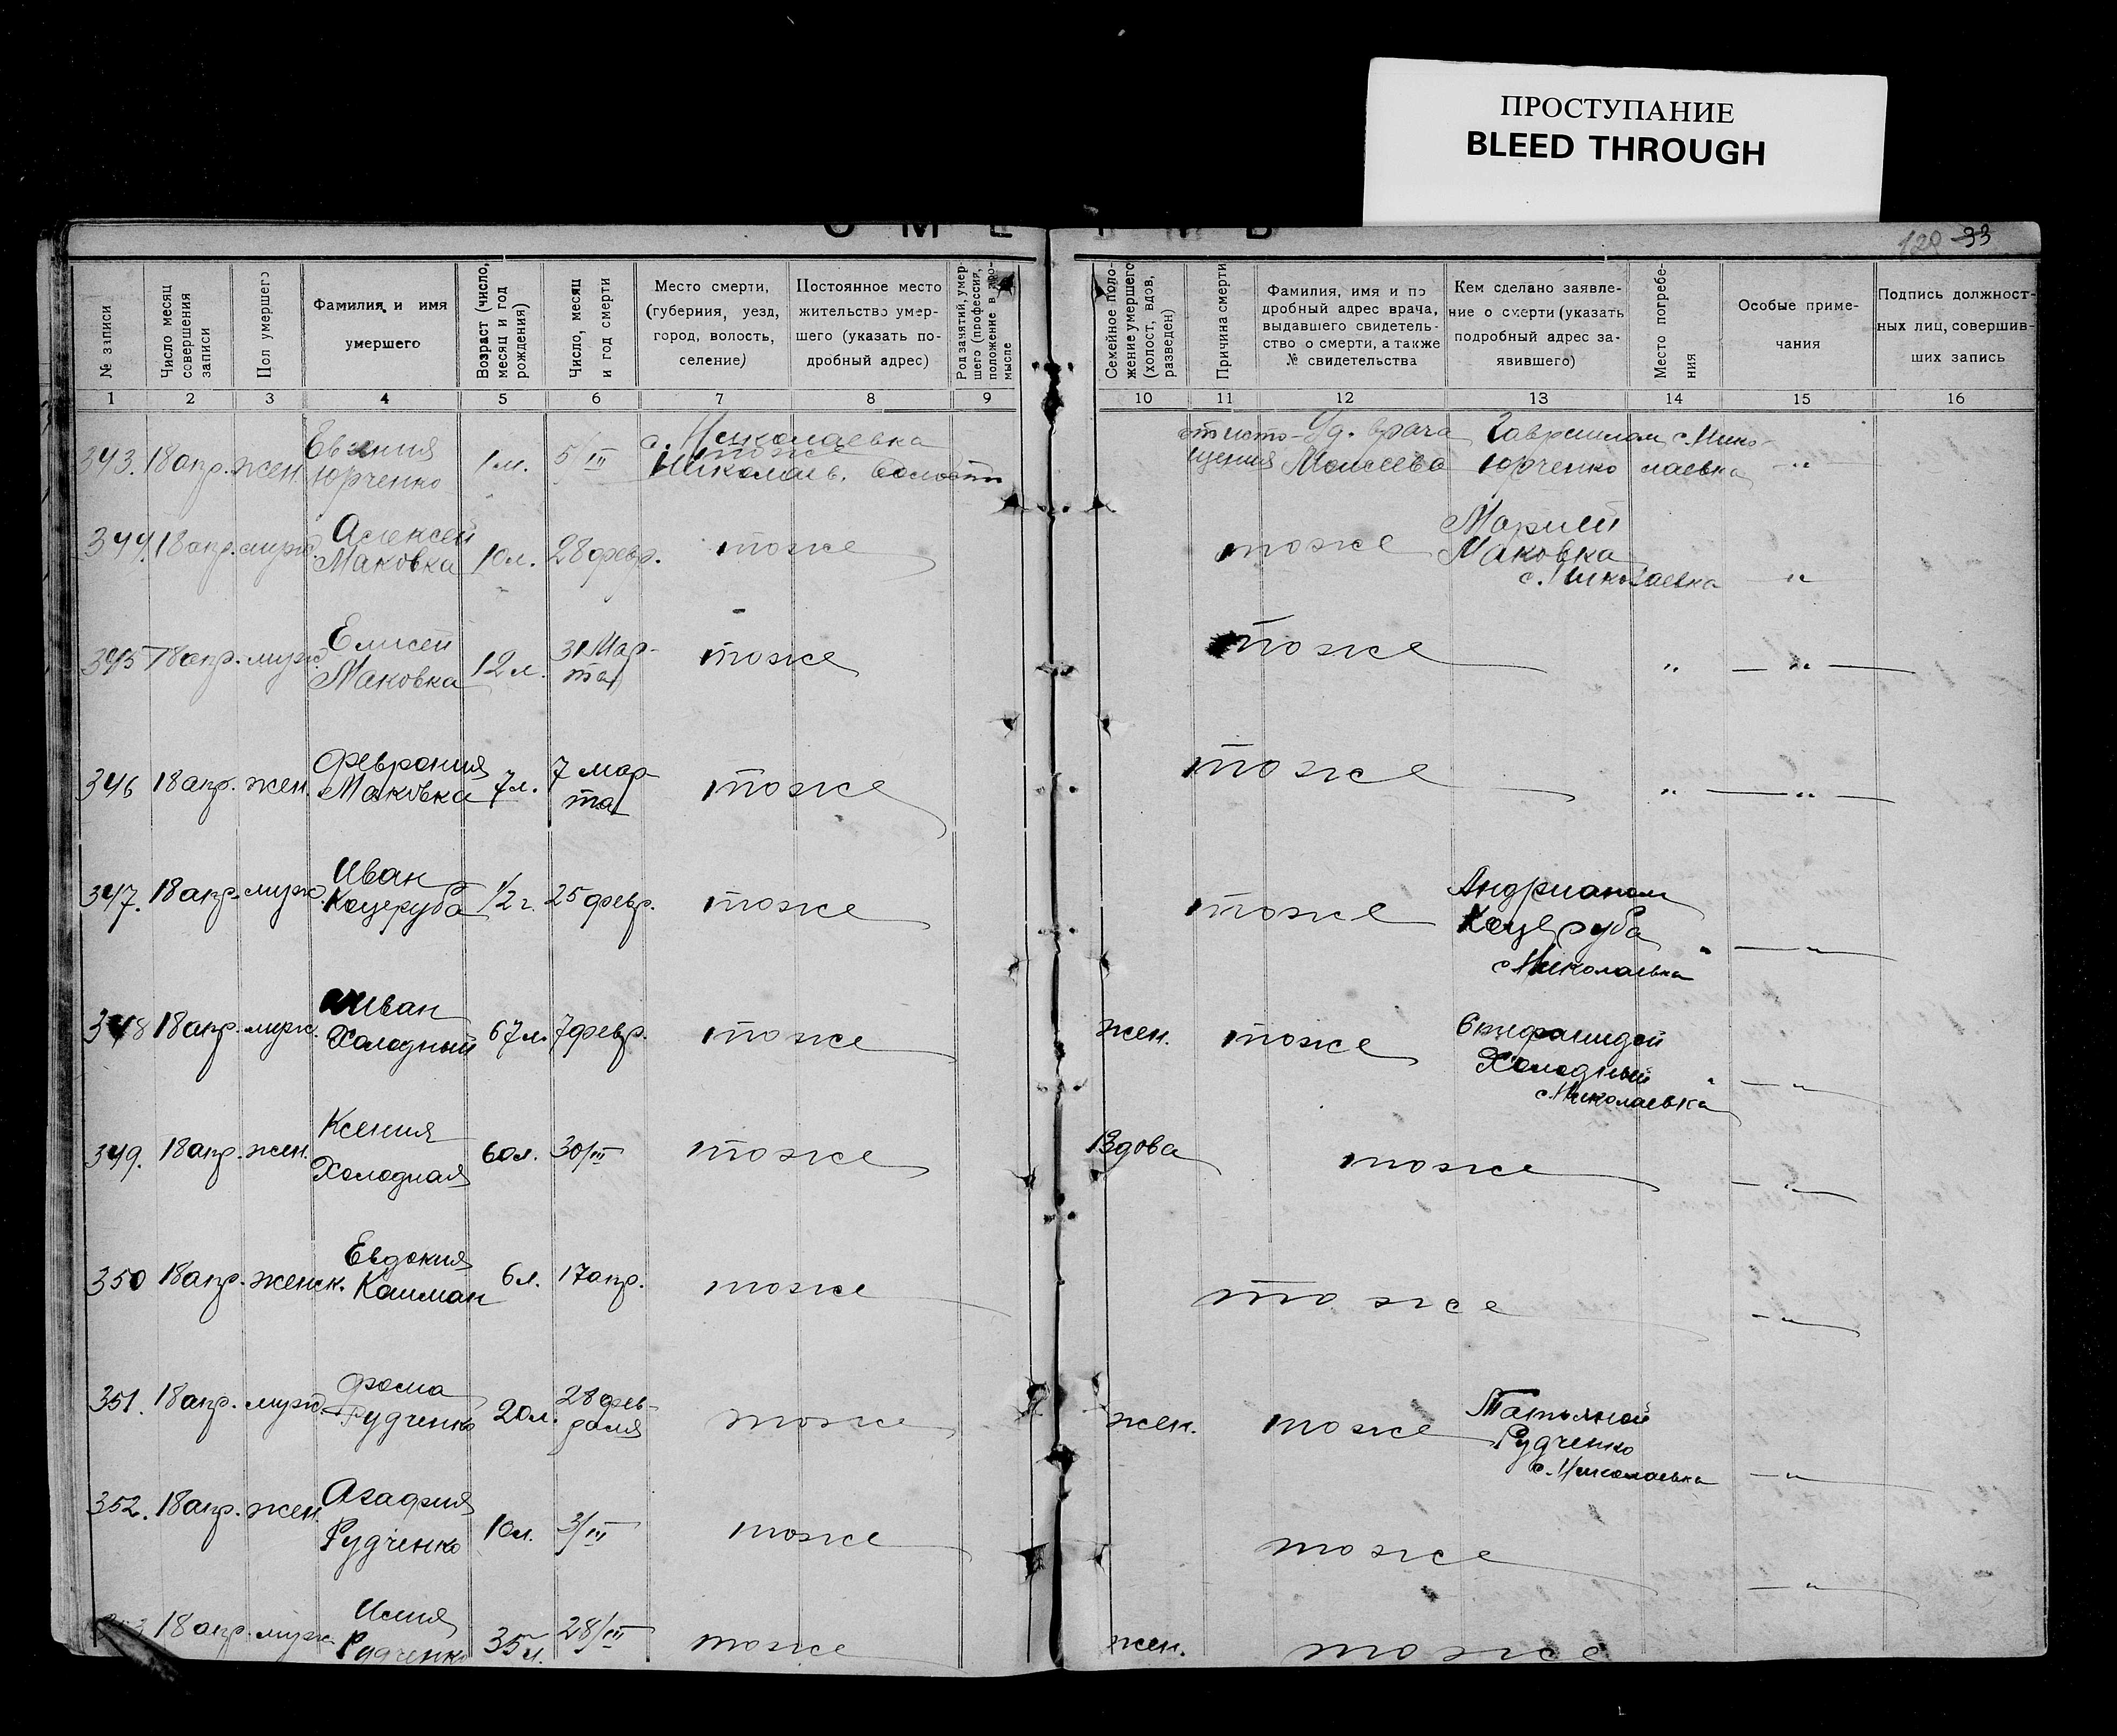 ПРОСТУПАНИЕ
BLEED THROUGH
О М Е
128 33
№ записи
Число месяц совершения записи
Пол умершего
Фамилия и имя
умершего
Возраст (число, месяц и год рождения)
Число, месяц и год смерти
Место смерти,
(губерния, уезд,
город, волость,
селение)
Постоянное место
жительство умер-
шего (указать по-
дробный адрес)
Род занятий, умер-
шего (профессия,
положение в про-
мысле
Семейное поло-
жение умершего
(холост, вдов,
разведен)
Причина смерти
Фамилия, имя и по
дробный адрес врача,
выдавшего свидетель-
ство о смерти, а также
№ свидетельства
Кем сделано заявле-
ние о смерти (указать
подробный адрес за-
явившего)
Место погребе-
ния
Особые приме-
чания
Подпись должност-
ных лиц, совершив-
ших запись
1 2 3 4 5 6 7 8 9 10 11 12 13 14 15 16
343. 18 апр. жен.
Юрченко
1 м. 5/III
с. Николаевка
тоже
Николаев. волости
от исто-
щения
Уд. врача
Моисеева
Гавриилом
Юрченко
с. Нико-
лаевка
"
344. 18 апр. муж.
Алексей
Маковка
10 л. 28 февр. тоже
тоже
Марией
Маковка
с. Николаевка
"
345 18 апр. муж.
Елисей
Маковка
12 л.
31 Мар-
та
тоже
тоже " — " —
346 18 апр. жен.
Феврония
Маковка
7 л.
7 мар-
та
тоже
тоже " — " —
347. 18 апр. муж.
Иван
Коцеруба
1/2 г. 25 февр. тоже
тоже
Андрианом
Коцеруба
с. Николаевка
" — " —
348 18 апр. муж.
Иван
Холодный
67 л. 7 февр. тоже
жен. тоже
Холодный
с. Николаевка
" — " —
349. 18 апр. жен.
Ксения
Холодная
60 л. 30/III тоже
Вдова тоже — " —
350 18 апр. женск.
Евдокия
Кашман
6 л. 17 апр. тоже
тоже — " —
351. 18 апр. муж.
Фома
Рудченко
20 л.
28 фев-
раля
тоже
жен. тоже
Татьяной
Рудченко
с. Николаевка
— " —
352. 18 апр. жен.
Агафия
Рудченко
10 л. 3/III тоже
тоже — " —
18 апр. муж.
Илия
Рудченко
35 л. 28/III тоже
жен. тоже